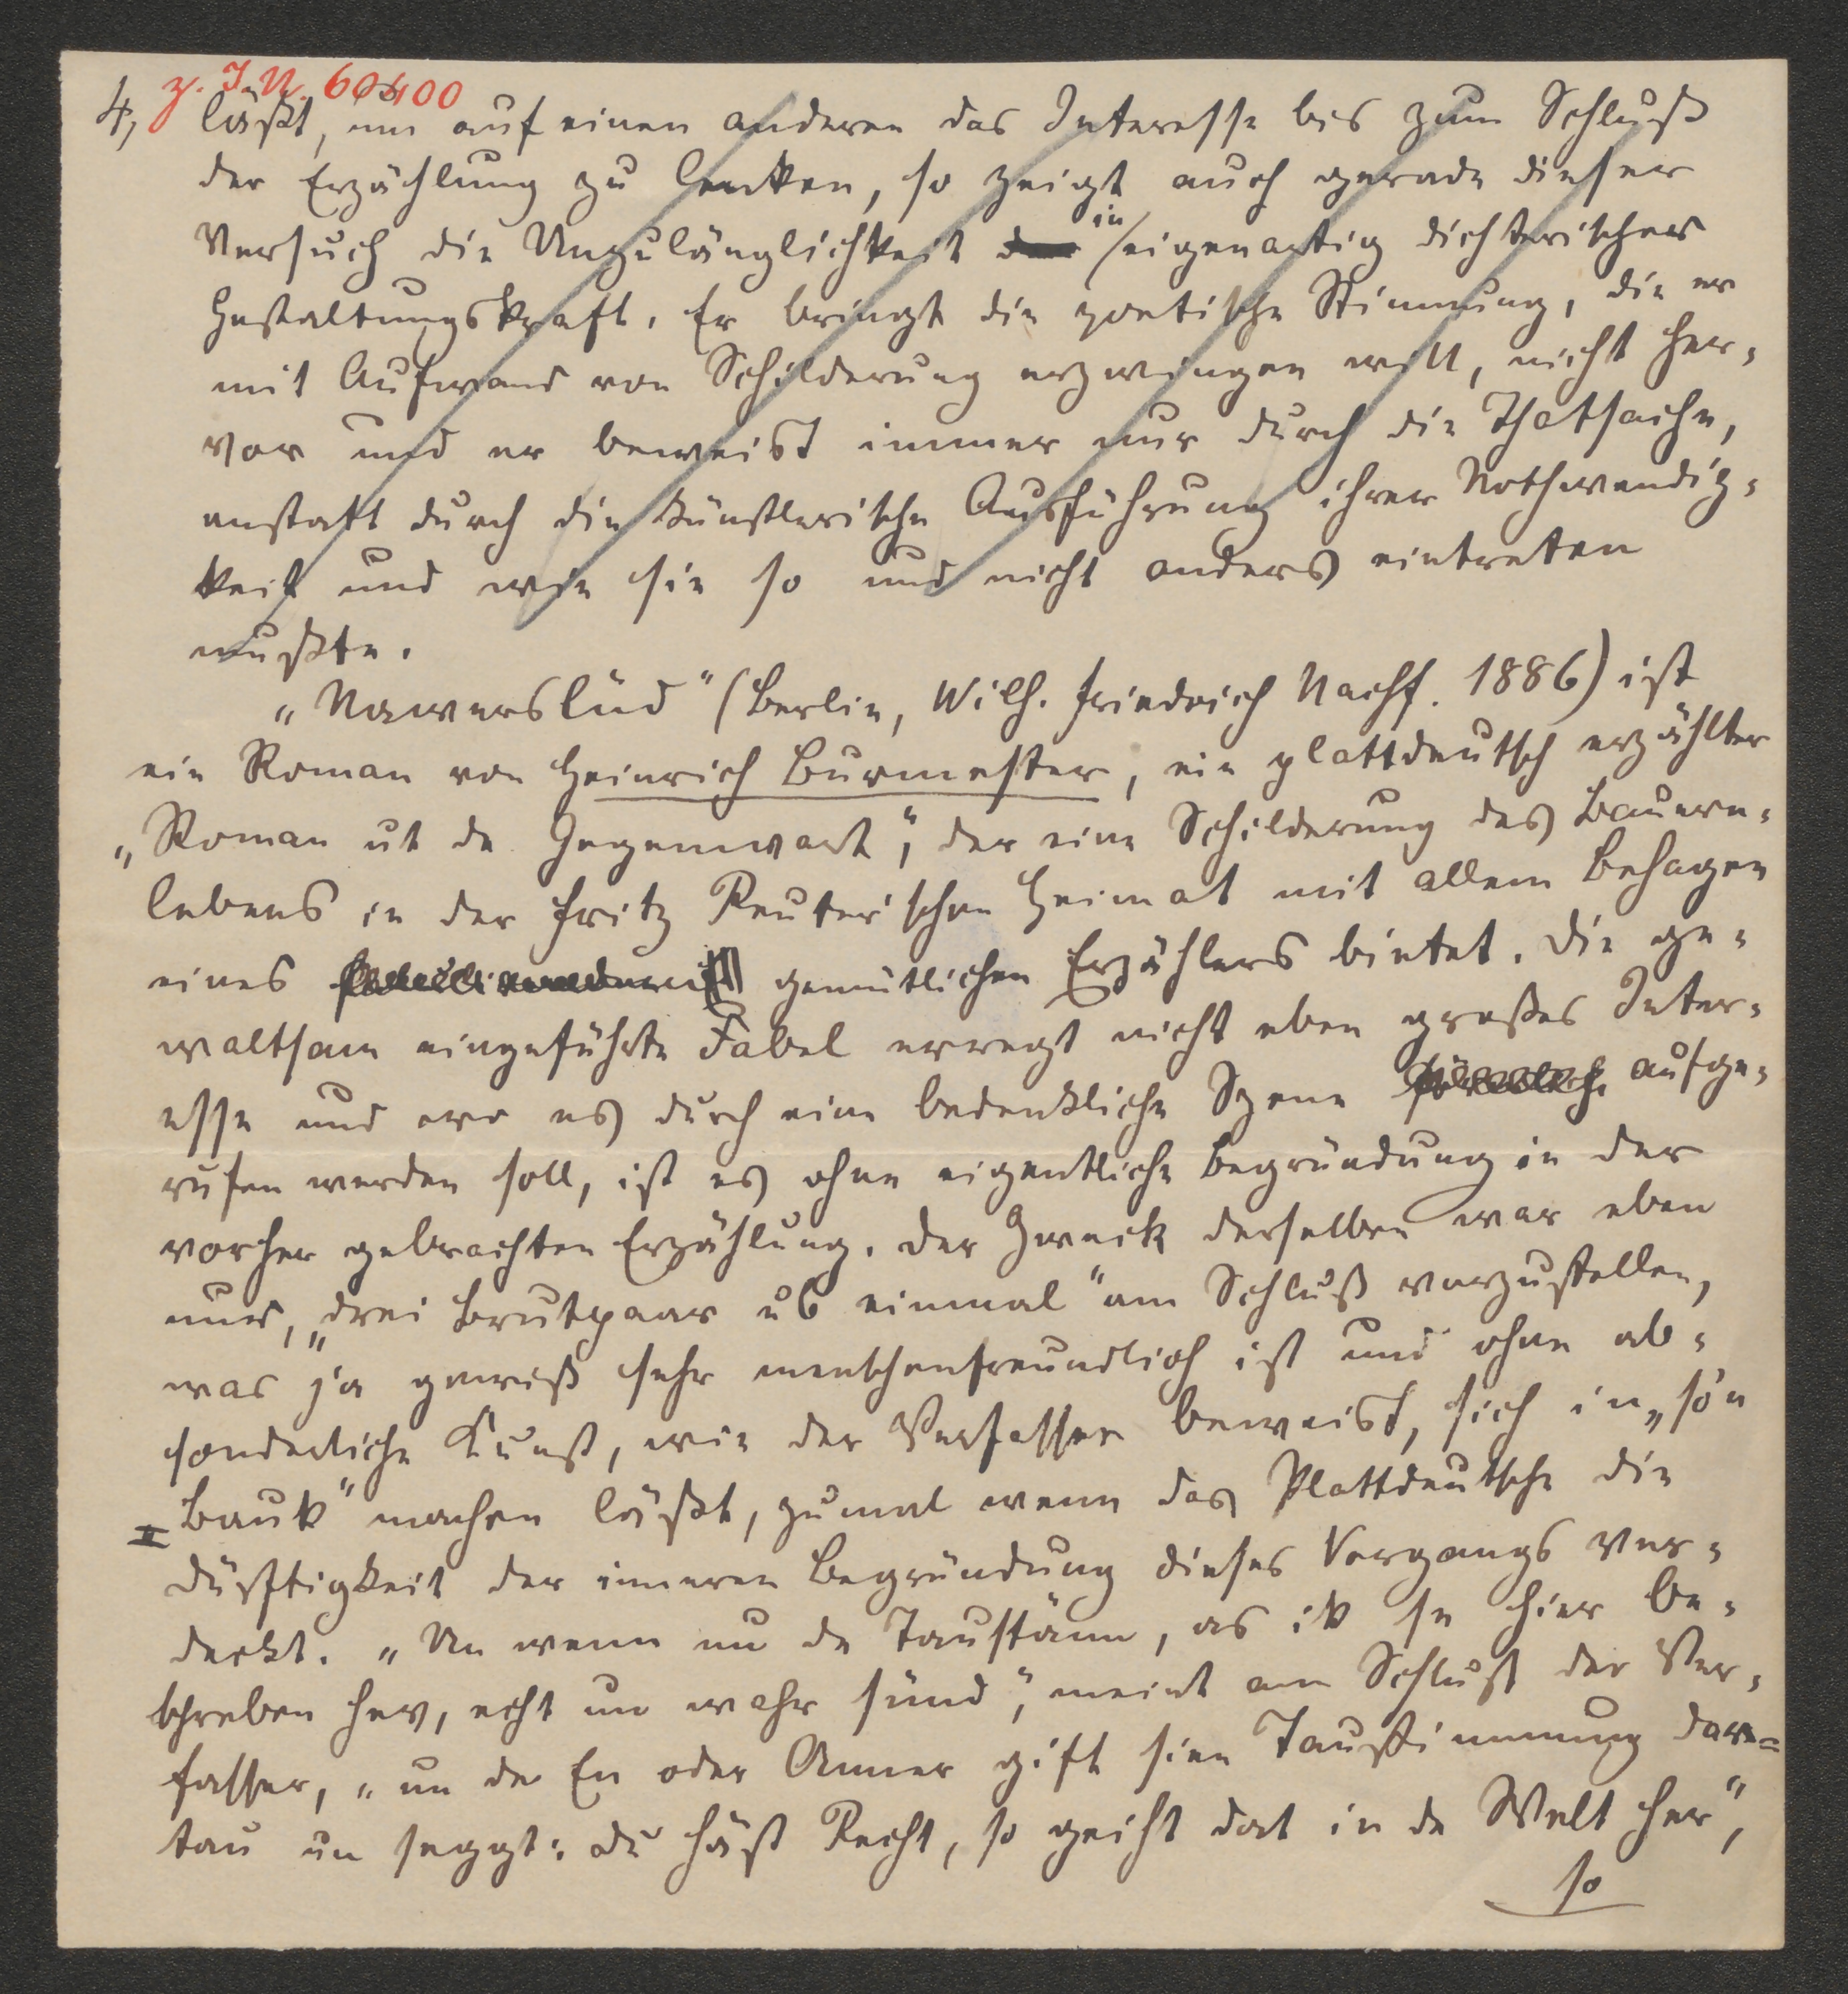 z. I. N. 60400
4, läßt, um auf einen anderen das Interesse bis zum Schluß
der Erzählung zu lenken, so zeigt auch gerade dieser
Versuch die Unzulänglichkeit der in eigenartig dichterischer
Gestaltungskraft. Er bringt die poetische Stimmung, die er
mit Aufwand von Schilderung erzwingen will, nicht her-
vor und er beweist immer nur durch die Thatsache,
anstatt durch die künstlerische Ausführung ihrer Nothwendig-
keit und wie sie so und nicht anders eintreten
mußte.
„Nawerslüd" (Berlin, Wilh. Friedrich Nachf. 1886) ist
ein Roman von Heinrich Burmester, ein plattdeutsch erzählter
„Roman ut de Gegenwart", der eine Schilderung des Bauern-
lebens in der Fritz Reuter'schen Heimat mit allem Behagen
eines gemütlichen Erzählers bietet. Die ge-
waltsam eingeführte Fabel erregt nicht eben großes Inter-
esse und wo es durch eine bedenkliche Szene aufge-
rufen werden soll, ist es ohne eigentliche Begründung in der
vorher gebrachten Erzählung. Der Zweck derselben war eben
nur, „drei Brutpaar up einmal" am Schluß vorzustellen,
was ja gewiß sehr menschenfreundlich ist und ohne ab-
sonderliche Kunst, wie der Verfasser beweist, sich in „so'n
Bauk" machen läßt, zumal wenn das Plattdeutsche die
Dürftigkeit der inneren Begründung dieses Vorgangs ver-
deckt. „Un wenn nu de Taustänn, as ik se hier be-
schreben hev, echt un wahr sünd", meint am Schluß der Ver-
fasser, „un de En oder Anner gift sien Taustimmung dar-
tau un seggt: du häst Recht, so geiht dat in de Welt her",
so